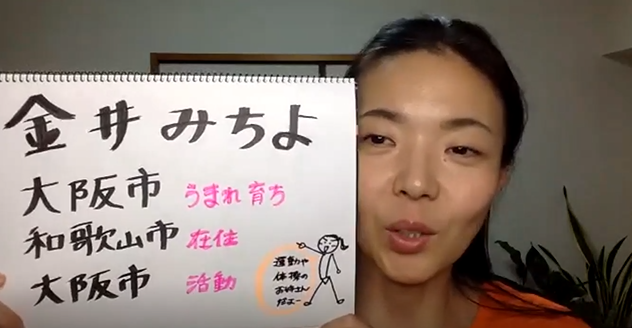 金井みちよ
大阪市 うまれ育ち
和歌山市 在住
大阪市 活動
運動や
体操の
お姉さん
だよー